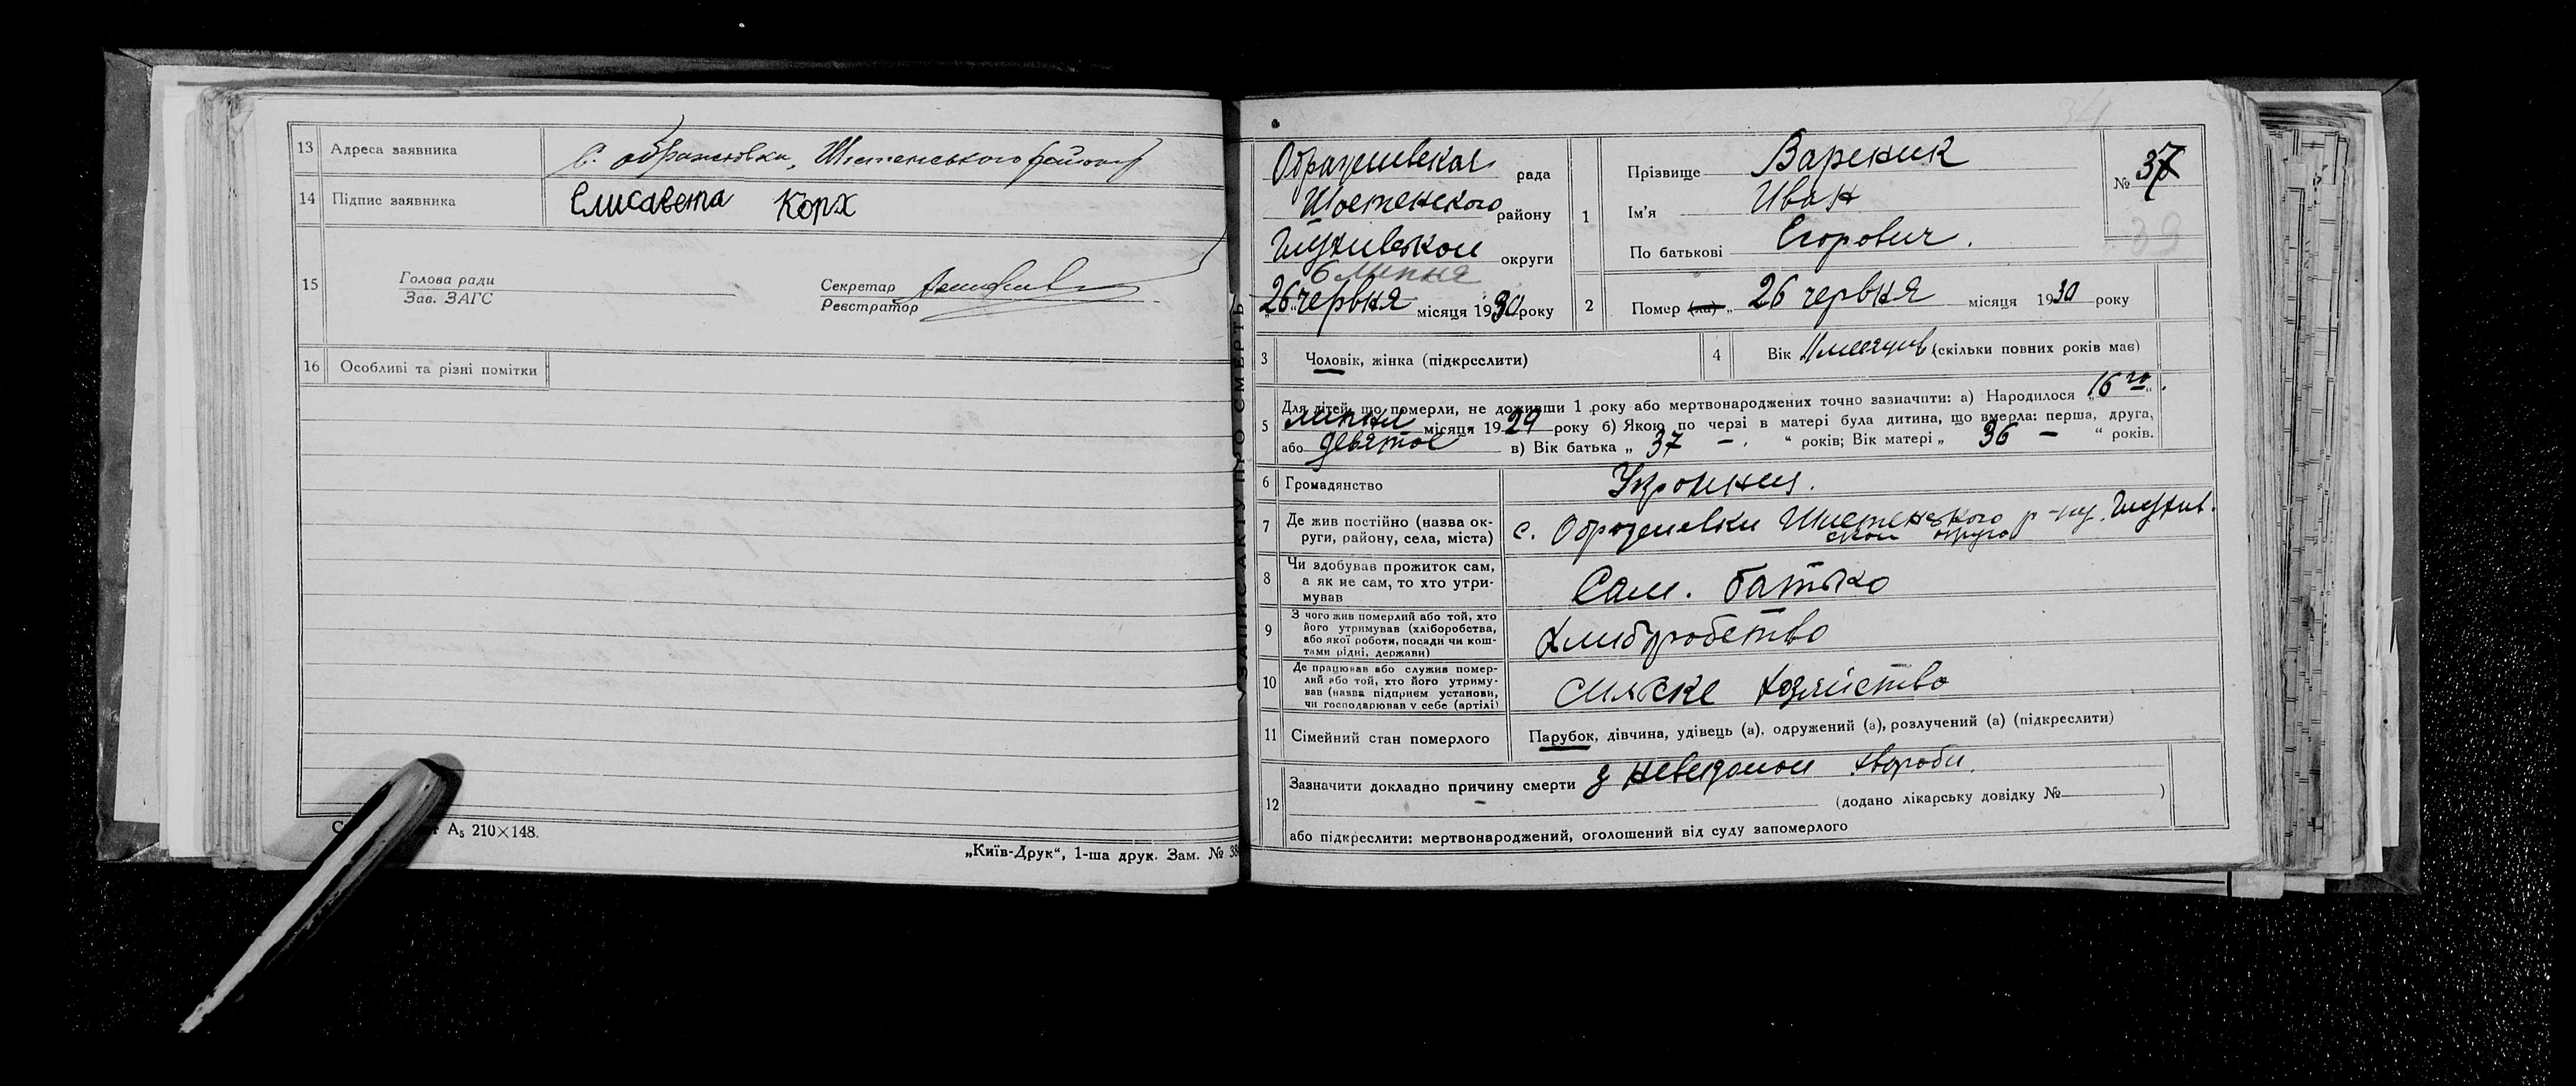 13 Адреса заявника с. Ображеювка, Шостенського району
14 Підпис заявника Елисавета Корх
15 Голова ради
Зав. ЗАГС
Секретар
Реєстратор
16 Особливі та різні помітки
А₅ 210×148.
„Київ-Друк“, 1-ша друк. Зам. № 38
ЗАПИС АКТУ ПРО СМЕРТЬ
34
Ображиевская рада
Шостенского району
Глухивськои округи
6 липня
„26“ червня місяця 1930 року
1 Прізвище Вареник
Ім’я Иван
По батькові Егорович.
№ 37
39
2 Помер (ла) „ 26 червня місяця 1930 року
3 Чоловік, жінка (підкреслити)
4 Вік 11 месяцив (скільки повних років має)
5 Для дітей, що померли, не доживши 1 року або мертвонароджених точно зазначити: а) Народилося „16го“
липня місяця 1929 року б) Якою по черзі в матері була дитина, що вмерла: перша, друга,
або девятое в) Вік батька „ 37 — “ років; Вік матері „ 36 — “ років.
6 Громадянство
7 Де жив постійно (назва округи, району, села, міста) с. Ображиевки Шостенского р-ну, Глухив.
ськои округа
8 Чи здобував прожиток сам,
а як не сам, то хто утримував
Сам. батько
9 З чого жив померлий або той, хто
його утримував (хліборобства,
або якої роботи, посади чи коштами рідні, держави)
хлиборобство
10 Де працював або служив померлий або той, хто його утримував (назва підприєм установи,
чи господарював у себе (артілі)
силске хозяйство
11 Сімейний стан померлого Парубок, дівчина, удівець (а), одружений (а), розлучений (а) (підкреслити)
12 Зазначити докладно причину смерти з невидомои хвороби.
(додано лікарську довідку № )
або підкреслити: мертвонароджений, оголошений від суду запомерлого